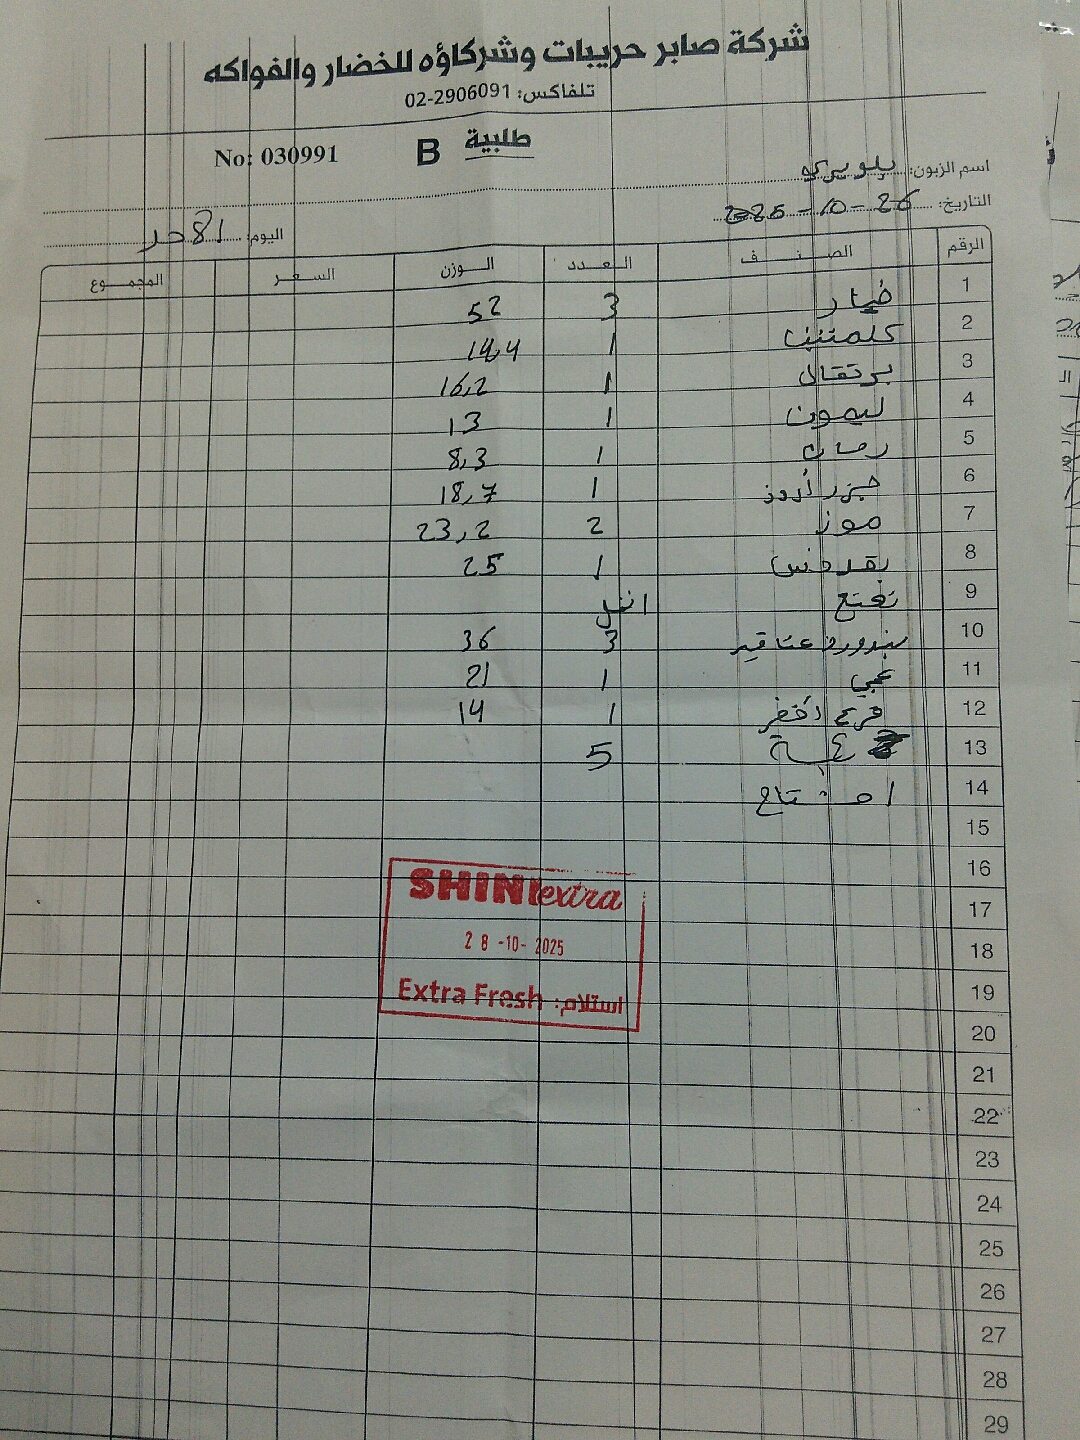 شركة صابر حريبات وشركاؤه للخضار والفواكه
تلفاكس: 02-2906091
طلبية B No: 030991
اسم الزبون:
التاريخ: 26-10-2025
اليوم: الاحد
الرقم الصنف العدد الوزن السعر المجموع
1 خيار 3 52
2 كلمنتينا 1 14,4
3 برتقال 1 16,2
4 ليمون 1 13
5 رمان 1 8,3
6 جزر 1 18,7
7 موز 2 23,2
8 بقدونس 1 25
9 نعنع
10 بندورة عناقيد 3 36
11 1 21
12 قرع اخضر 1 14
13 5
14
15
16
17
18
19
20
21
22
23
24
25
26
27
28
29
SHINI extra
28-10-2025
Extra Fresh استلام: